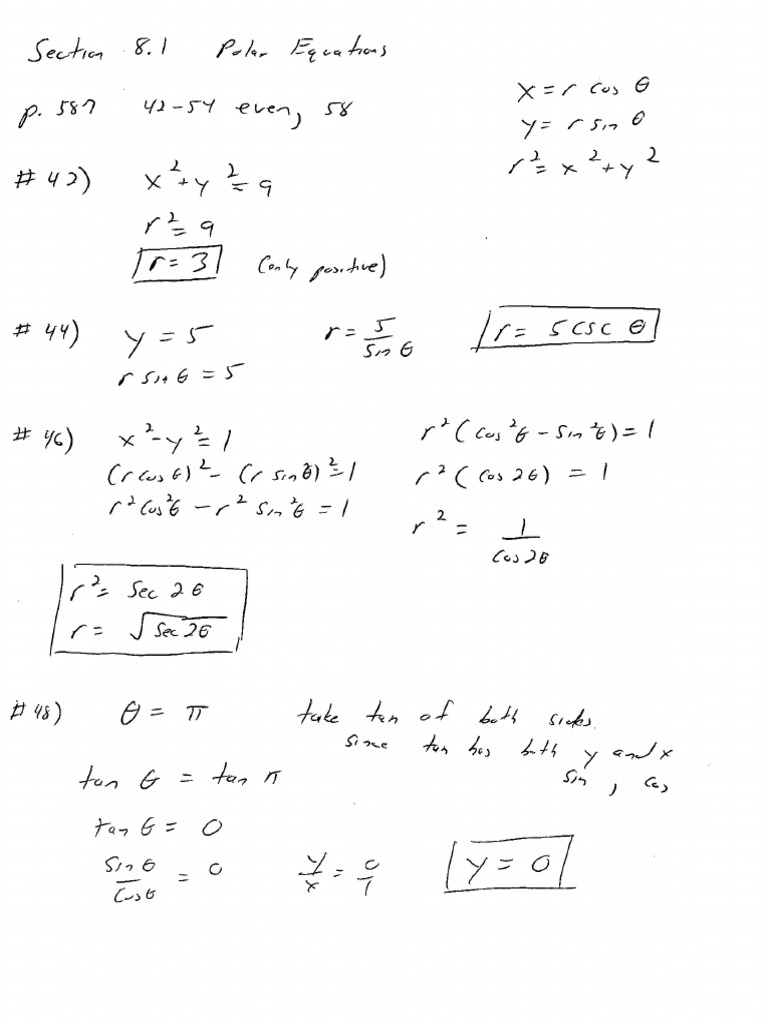 Section 8.1 Polar Equations
p. 587 42-54 even, 58
x = r cos θ
y = r sin θ
r² = x² + y²
#42) x² + y² = 9
r² = 9
r = 3 (only positive)
#44) y = 5 r = 5/sin θ r = 5 csc θ
r sin θ = 5
#46) x² - y² = 1 r²(cos²θ - sin²θ) = 1
(r cos θ)² - (r sin θ)² = 1 r²(cos 2θ) = 1
r² cos²θ - r² sin²θ = 1 r² = 1/cos 2θ
r² = sec 2θ
r = √sec 2θ
#48) θ = π take tan of both sides.
since tan has both y and x
sin, cos
tan θ = tan π
tan θ = 0
sin θ/cos θ = 0 y/x = 0/1 y = 0